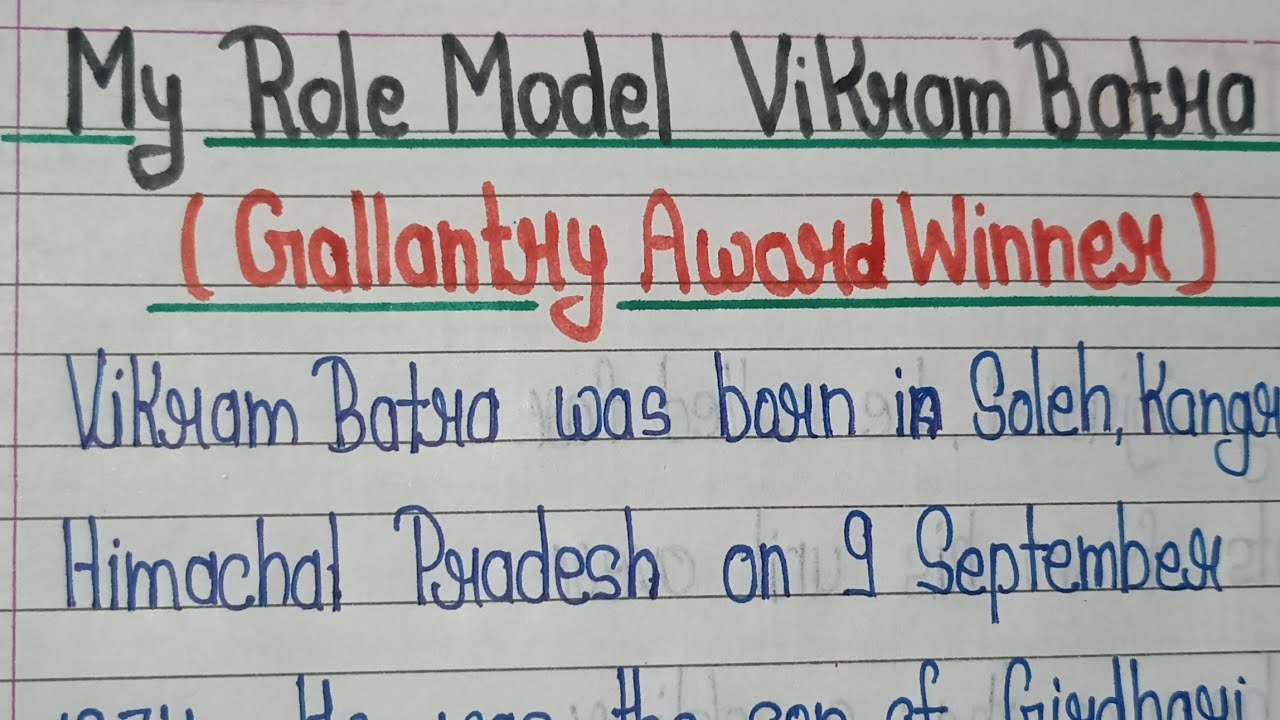 My Role Model Vikram Batra
(Gallantry Award Winner)
Vikram Batra was born in Soleh, Kangr
Himachal Pradesh on 9 September
1974. He was the son of Girdhari